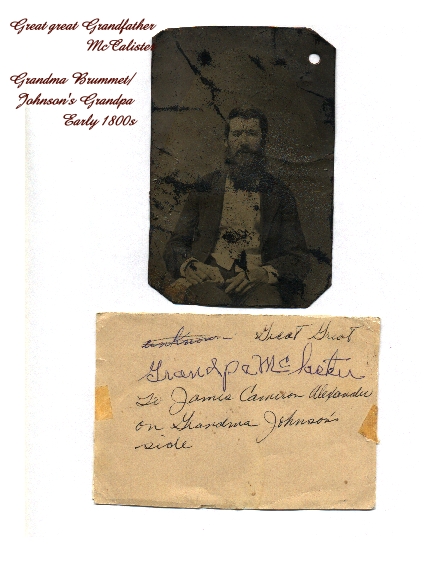 Great great Grandfather
McCalister
Grandma Brummet/
Johnson's Grandpa
Early 1800s
unknown Great Great
Grandpa
To James Cameron Alexander
on Grandma Johnson's
side